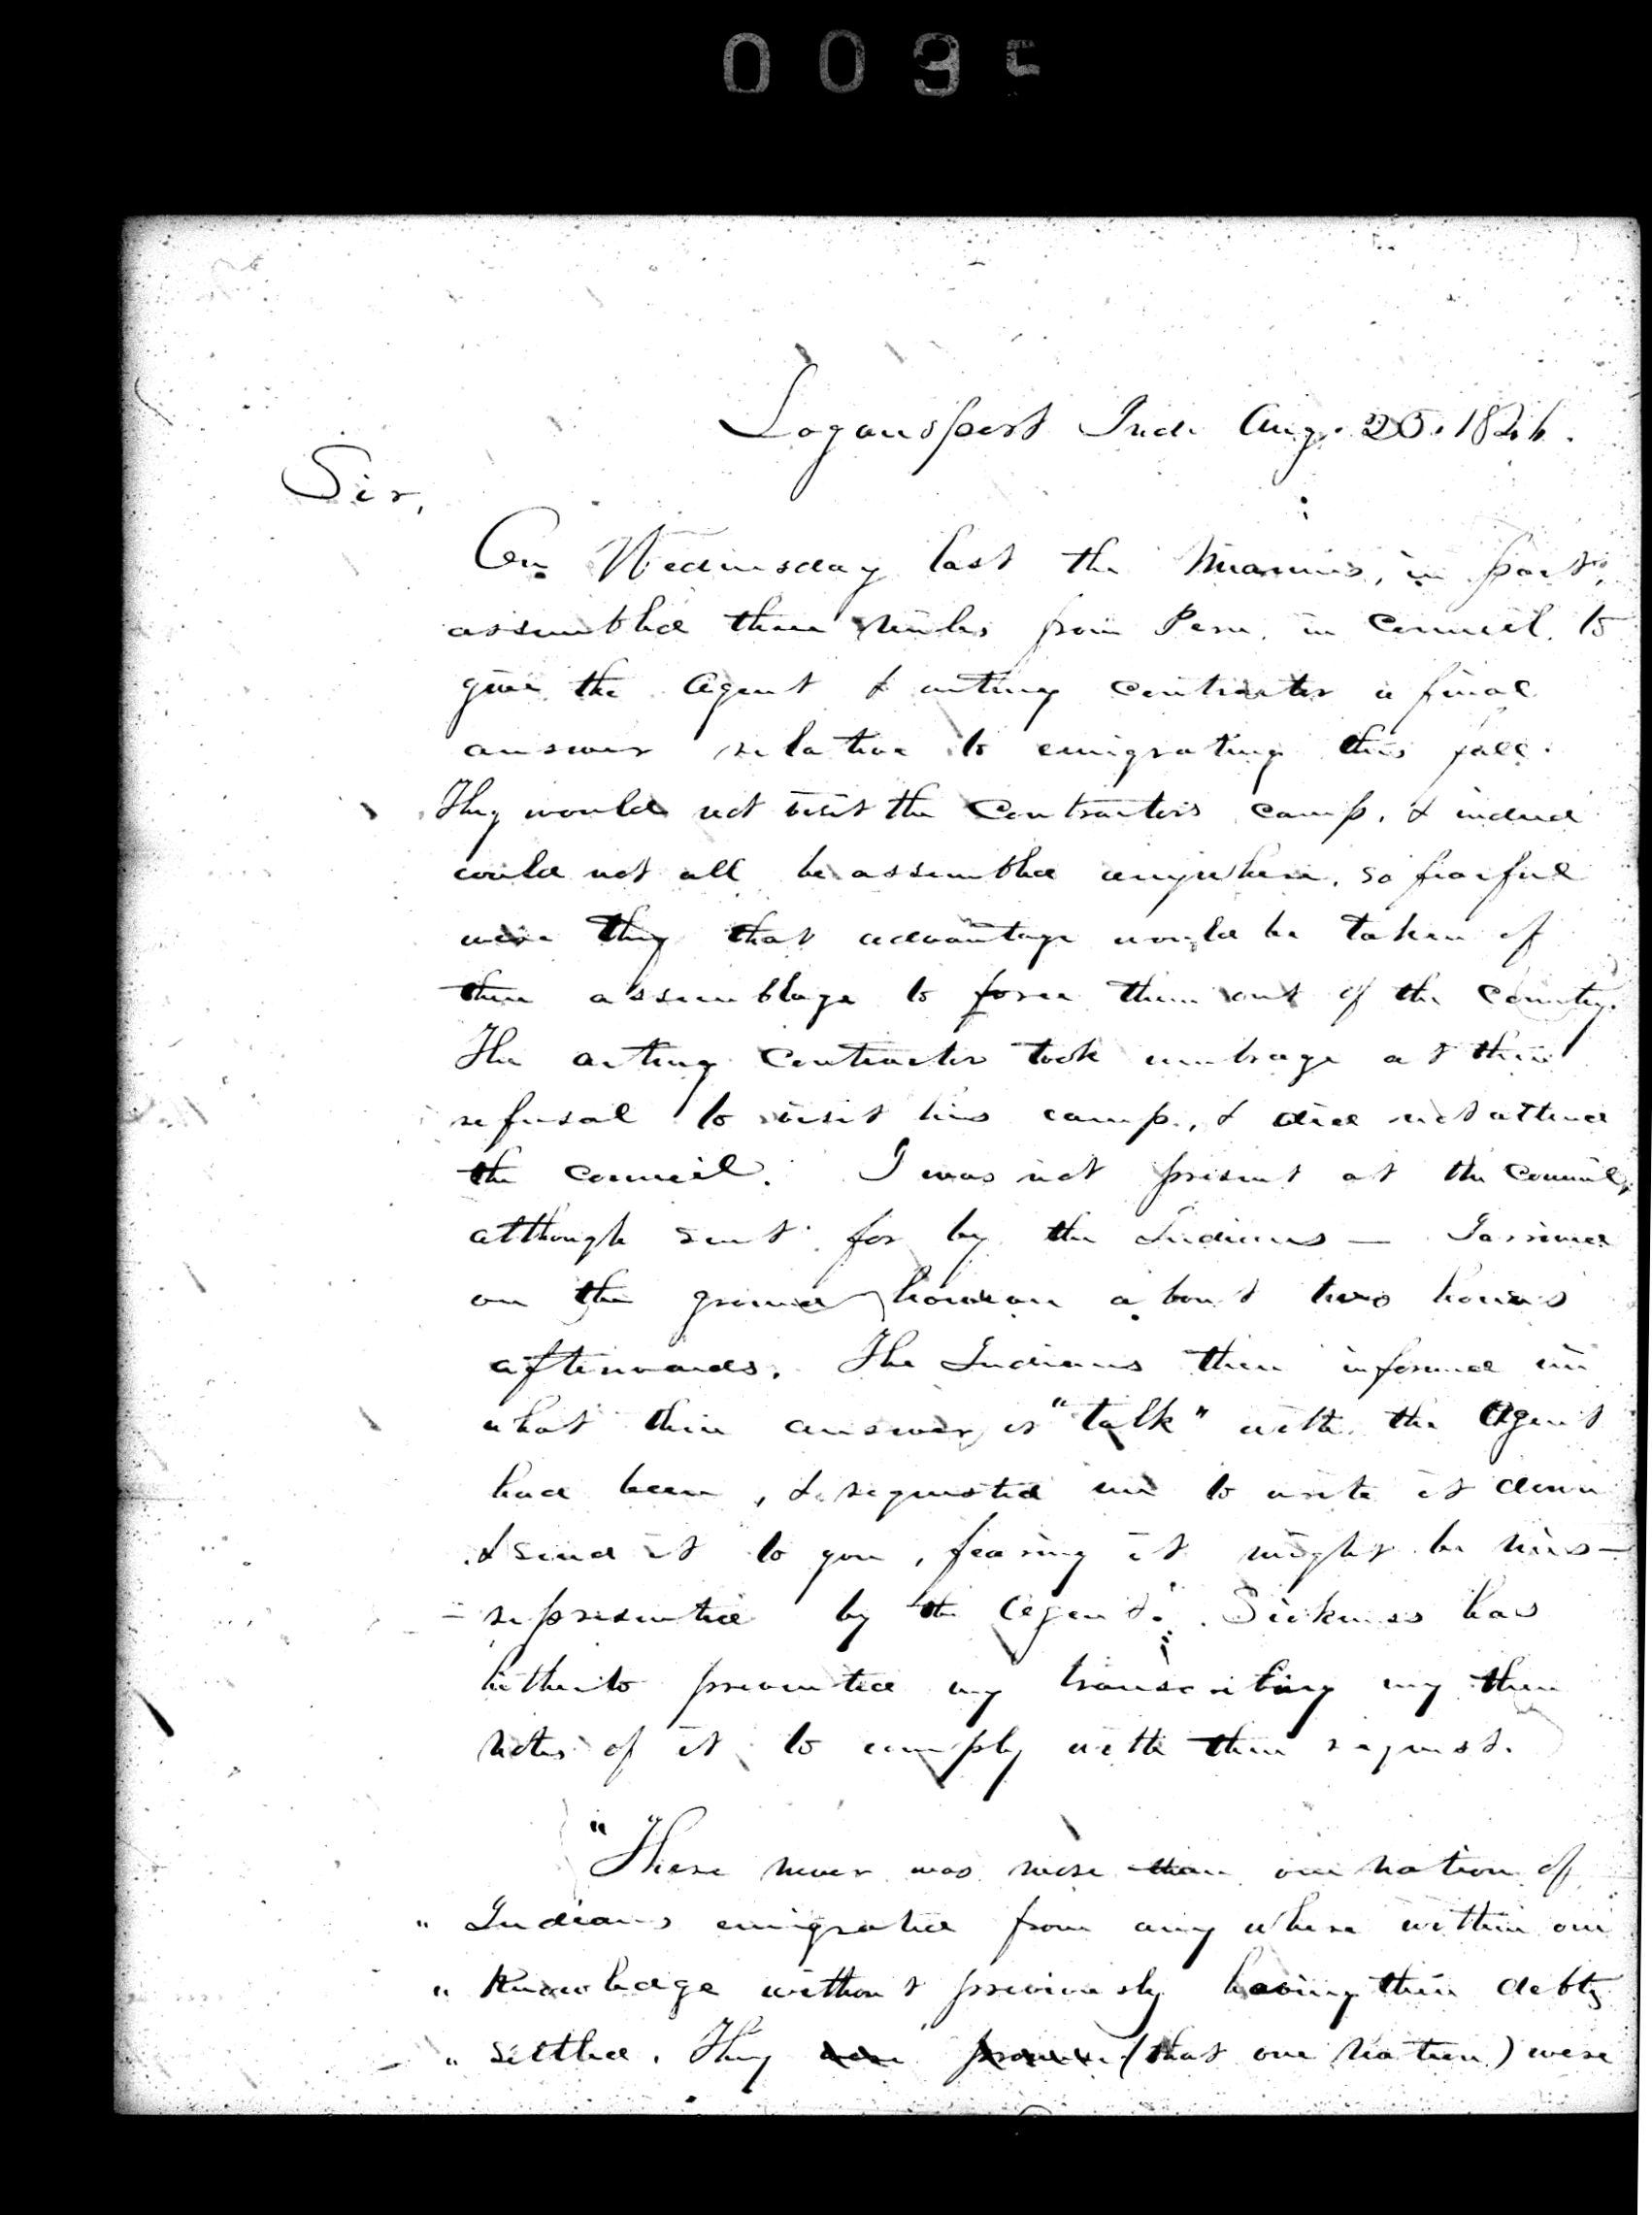 0035
Logansport Inda Aug. 25. 1846.
Sir,
On Wednesday last the Miamis, in part,
assembled three miles from Peru, in Council, to
give the Agent & acting contractor a final
answer relative to emigrating this fall.
They would not visit the Contractors camp, & indeed
could not all be assembled anywhere, so fearful
were they that advantage would be taken of
their assemblage to force them out of the Country.
The acting Contractor took umbrage at their
refusal to visit his camp, & did not attend
the council. I was not present at the Council,
although sent for by the Indians — I arrived
on the ground however about two hours
afterwards. The Indians then informed me
what their answer or "talk" with the Agent
had been, & requested me to write it down
& send it to you, fearing it might be mis-
-represented by the Agent. Sickness has
hitherto prevented my transcribing my then
notes of it to comply with their request.
"There never was more than one nation of
" Indians emigrated from any where within our
" Knowledge without previously having their debts
" settled. They (that one nation) were